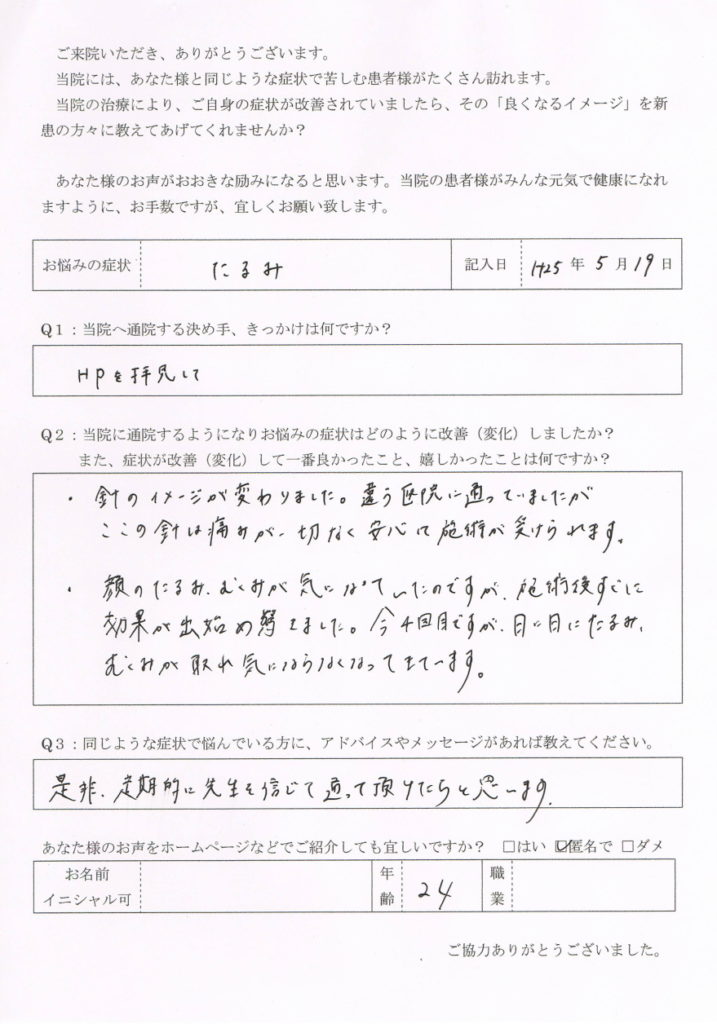 ご来院いただき、ありがとうございます。
当院には、あなた様と同じような症状で苦しむ患者様がたくさん訪れます。
当院の治療により、ご自身の症状が改善されていましたら、その「良くなるイメージ」を新
患の方々に教えてあげてくれませんか？
あなた様のお声がおおきな励みになると思います。当院の患者様がみんな元気で健康になれ
ますように、お手数ですが、宜しくお願い致します。
お悩みの症状 たるみ 記入日 H25 年 5 月 19 日
Q1：当院へ通院する決め手、きっかけは何ですか？
HPを拝見して
Q2：当院に通院するようになりお悩みの症状はどのように改善（変化）しましたか？
また、症状が改善（変化）して一番良かったこと、嬉しかったことは何ですか？
・針のイメージが変わりました。違う医院に通っていましたが
ここの針は痛みが一切なく安心して施術が受けられます。
・顔のたるみ、むくみが気になっていたのですが、施術後すぐに
効果が出始め驚きました。今4回目ですが、日に日にたるみ、
むくみが取れ気にならなくなってきています。
Q3：同じような症状で悩んでいる方に、アドバイスやメッセージがあれば教えてください。
是非、定期的に先生を信じて通って頂けたらと思います。
あなた様のお声をホームページなどでご紹介しても宜しいですか？ □はい ☑匿名で □ダメ
お名前
イニシャル可
年齢 24 職業
ご協力ありがとうございました。